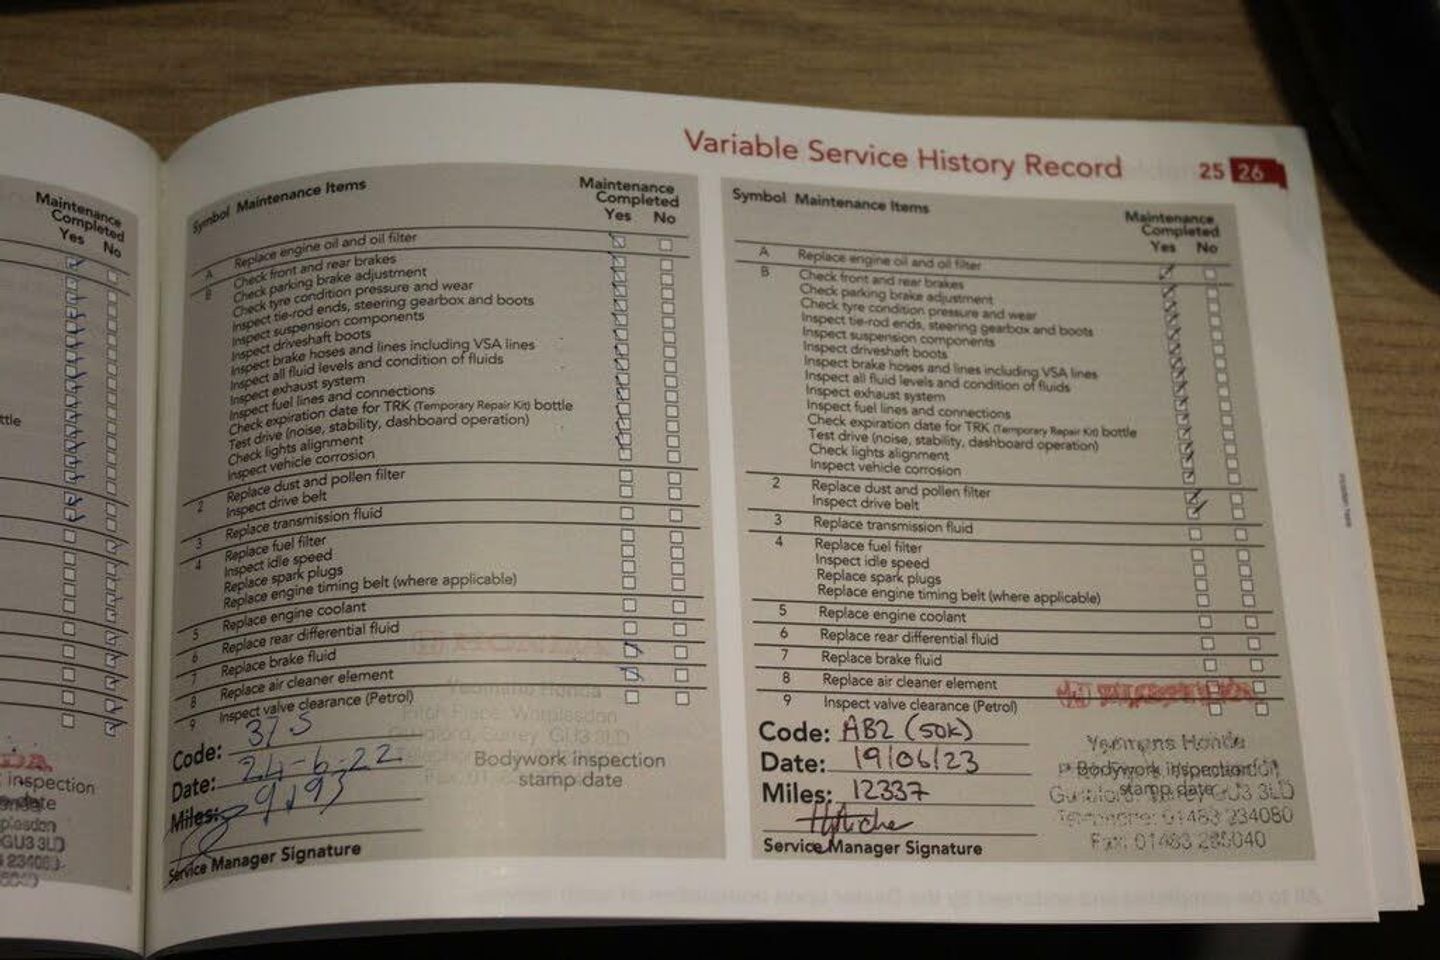 Variable Service History Record 25 26
Maintenance
Completed
Yes No
tle
inspection
date
plesdon
GU3 3LD
Symbol Maintenance Items
Maintenance
Completed
Yes No
A Replace engine oil and oil filter
B Check front and rear brakes
Check parking brake adjustment
Check tyre condition pressure and wear
Inspect tie-rod ends, steering gearbox and boots
Inspect suspension components
Inspect driveshaft boots
Inspect brake hoses and lines including VSA lines
Inspect all fluid levels and condition of fluids
Inspect exhaust system
Inspect fuel lines and connections
Check expiration date for TRK (Temporary Repair Kit) bottle
Test drive (noise, stability, dashboard operation)
Check lights alignment
Inspect vehicle corrosion
2 Replace dust and pollen filter
Inspect drive belt
3 Replace transmission fluid
4 Replace fuel filter
Inspect idle speed
Replace spark plugs
Replace engine timing belt (where applicable)
5 Replace engine coolant
6 Replace rear differential fluid
7 Replace brake fluid
8 Replace air cleaner element
9 Inspect valve clearance (Petrol)
Code:
Date: 24-6-22
Miles: 9193
Service Manager Signature
Bodywork inspection
stamp date
Symbol Maintenance Items
Maintenance
Completed
Yes No
A Replace engine oil and oil filter
B Check front and rear brakes
Check parking brake adjustment
Check tyre condition pressure and wear
Inspect tie-rod ends, steering gearbox and boots
Inspect suspension components
Inspect driveshaft boots
Inspect brake hoses and lines including VSA lines
Inspect all fluid levels and condition of fluids
Inspect exhaust system
Inspect fuel lines and connections
Check expiration date for TRK (Temporary Repair Kit) bottle
Test drive (noise, stability, dashboard operation)
Check lights alignment
Inspect vehicle corrosion
2 Replace dust and pollen filter
Inspect drive belt
3 Replace transmission fluid
4 Replace fuel filter
Inspect idle speed
Replace spark plugs
Replace engine timing belt (where applicable)
5 Replace engine coolant
6 Replace rear differential fluid
7 Replace brake fluid
8 Replace air cleaner element
9 Inspect valve clearance (Petrol)
Code: AB2 (50K)
Date: 19/06/23
Miles: 12337
Service Manager Signature
Yeomans Honda
Bodywork inspection
stamp date
GU3 3LD
Telephone: 01483 234080
Fax: 01483 285040